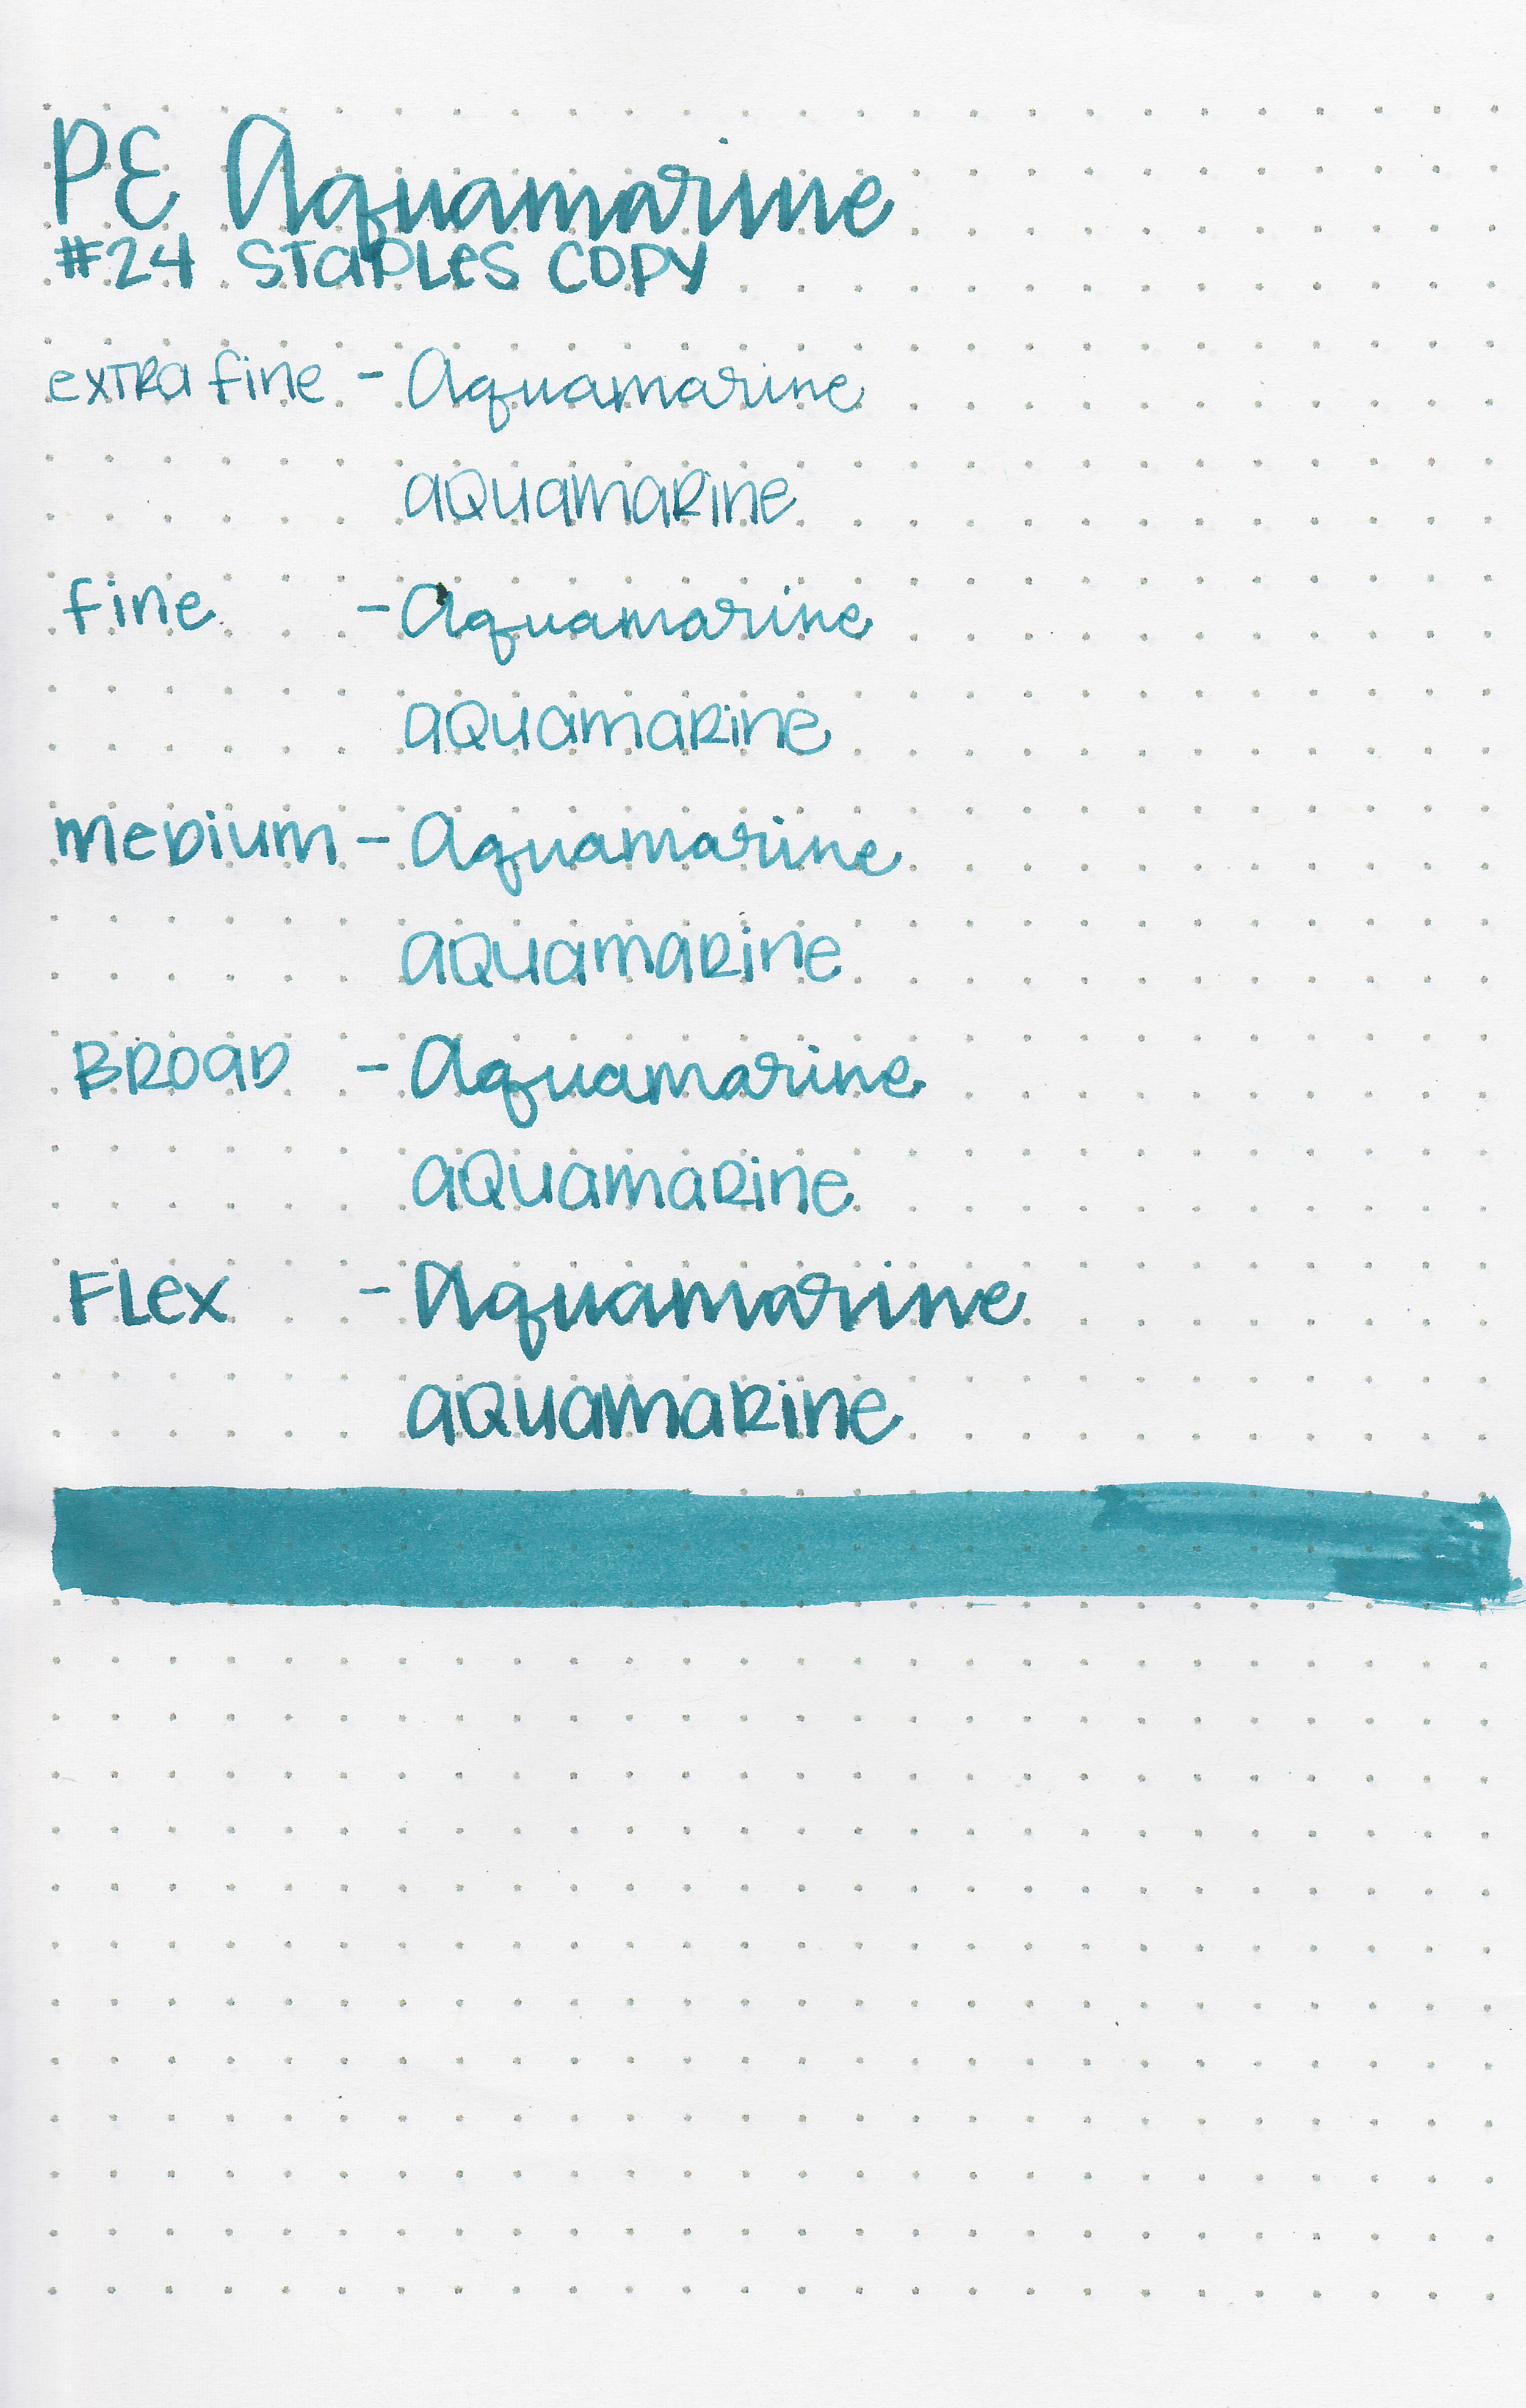 PE Aquamarine
#24 STAPLES COPY
exTRa fine - Aquamarine
aQuamaRine
fine - Aquamarine
aQuamaRine
meDium - Aquamarine
aQuamaRine
BROaD - Aquamarine
aQuamaRine
FLex - Aquamarine
aQuamaRine